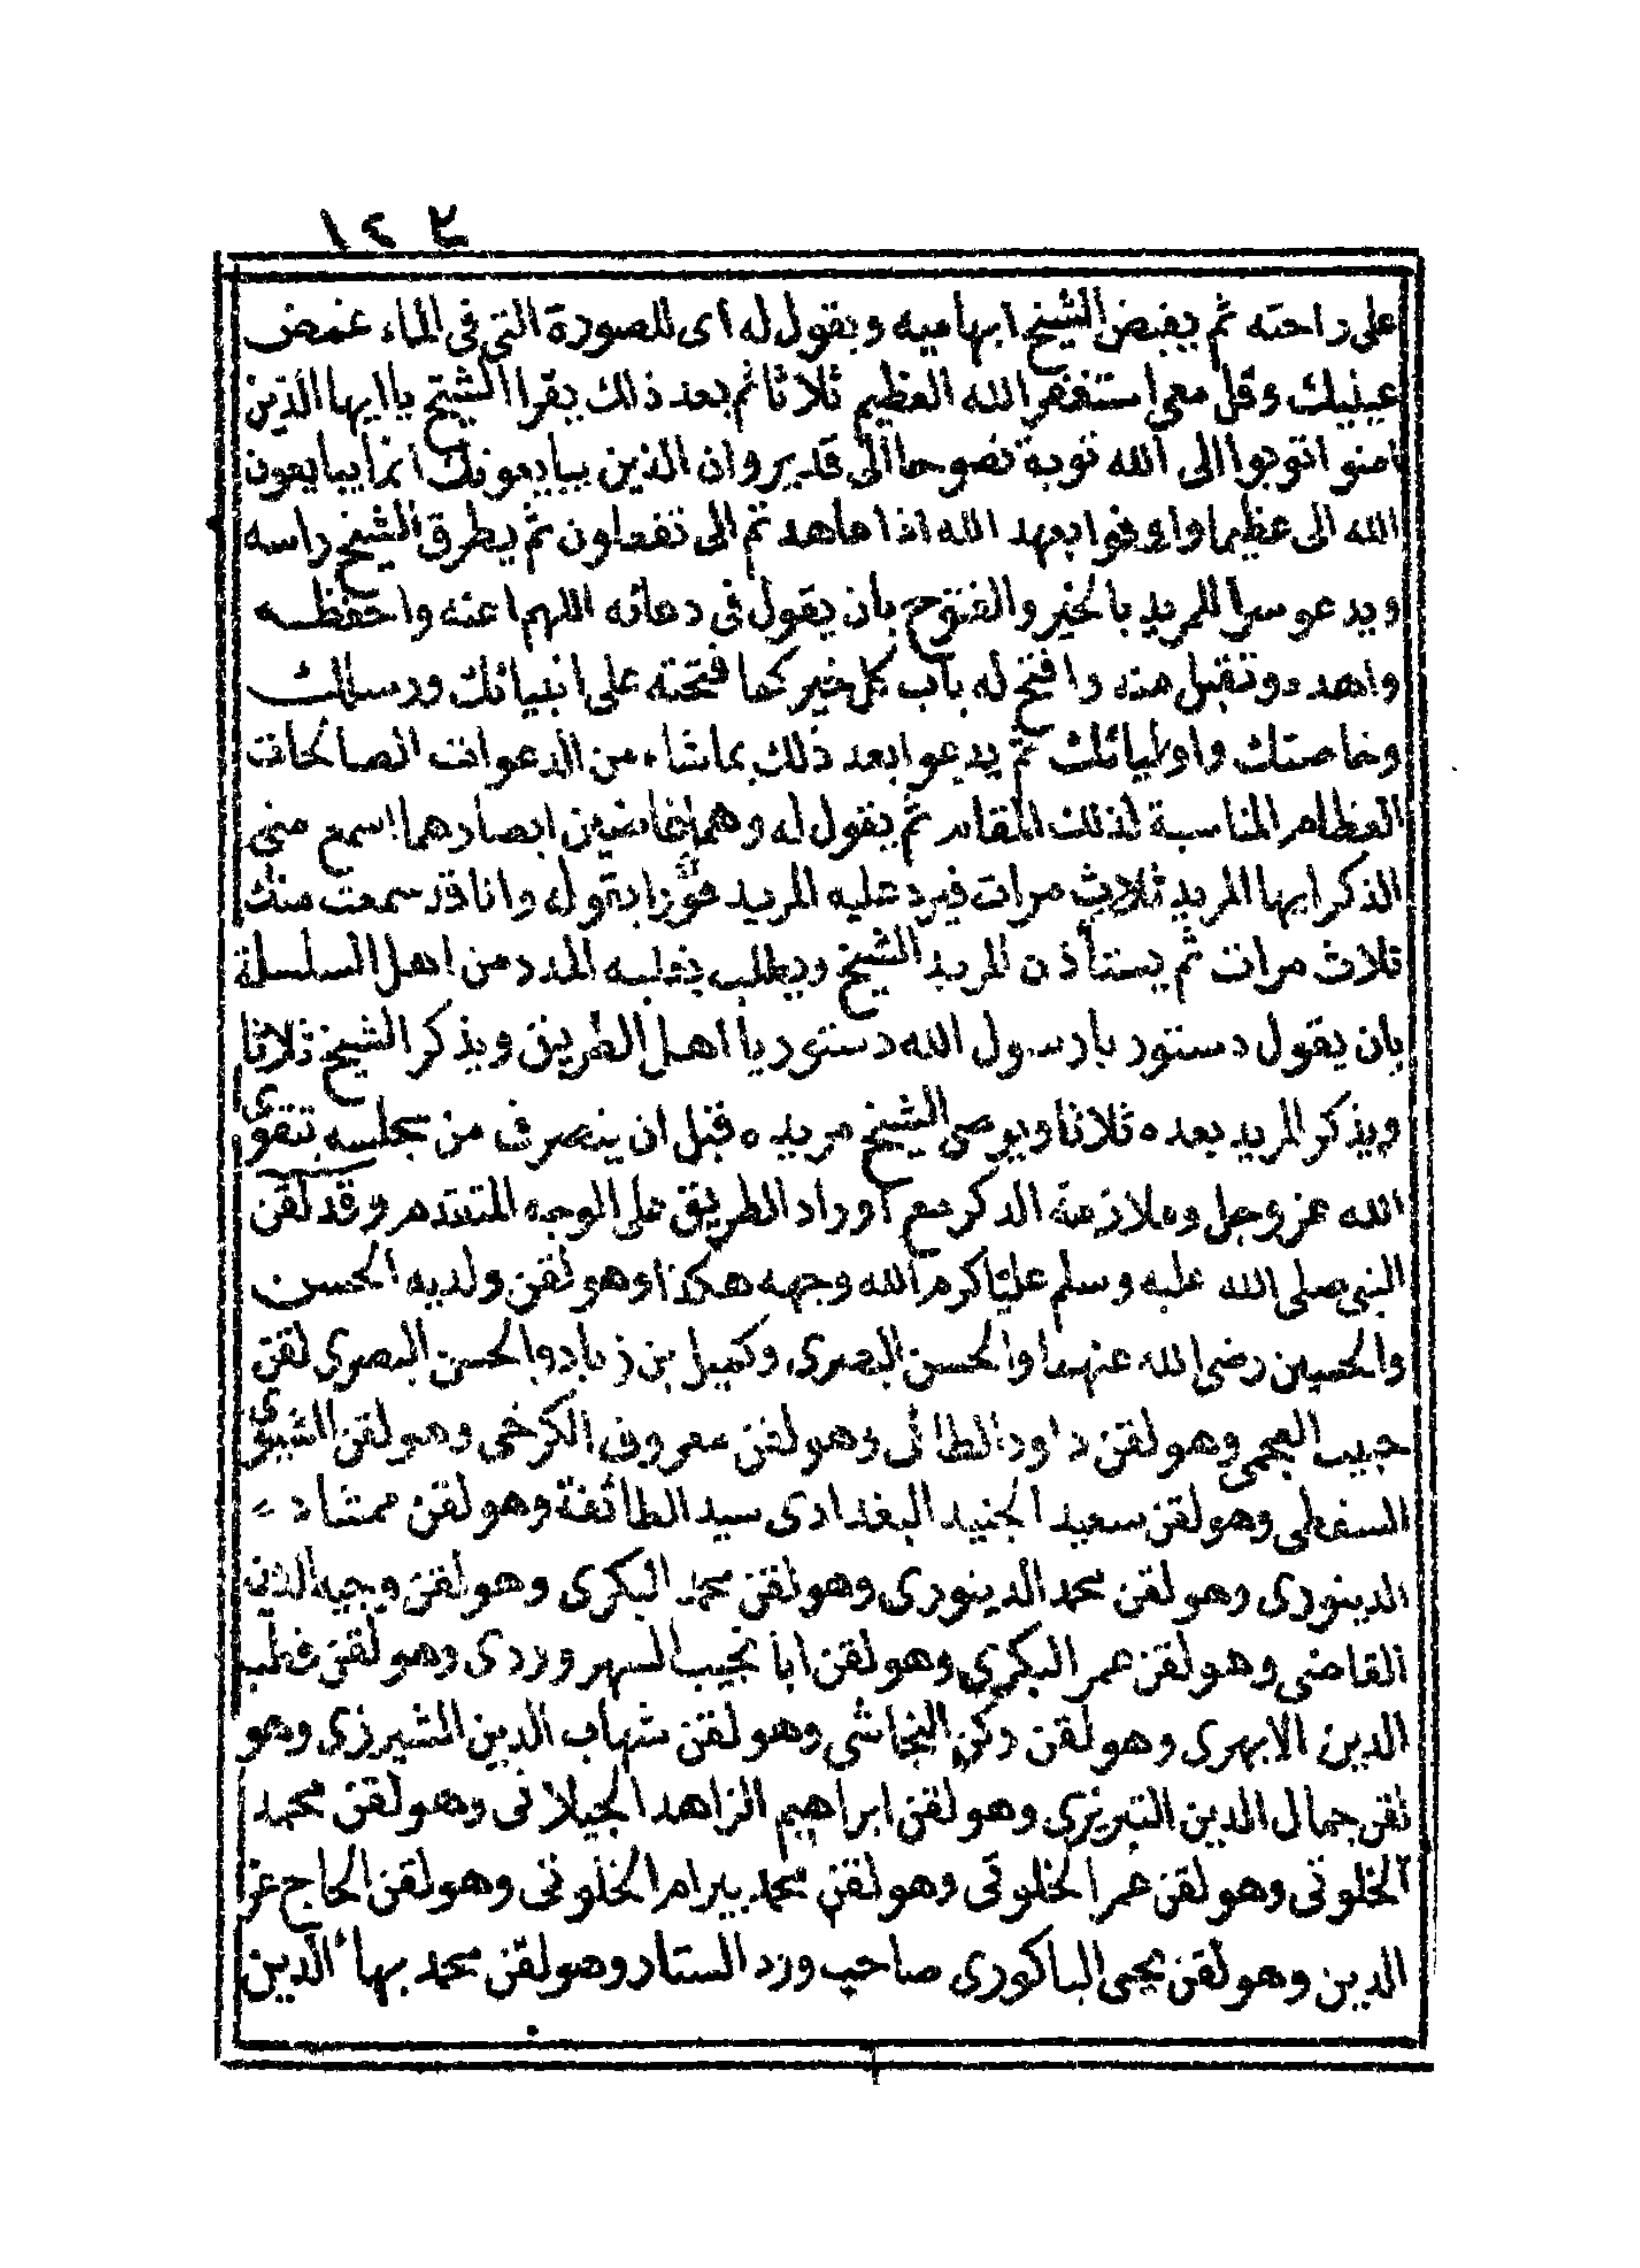 ١٤٣
على راحته ثم يقبض الشيخ ابهاميه ويقول له اى للصورة التى فى الماء غمض
عينيك وقل معى استغفر الله العظيم ثلاثا ثم بعد ذلك يقرا الشيخ يا ايها الذين
امنوا توبوا الى الله توبة نصوحا الى قدير وان الذين يبايعونك انما يبايعون
الله الى عظيما واوفوا بعهد الله اذا عاهدتم الى تفعلون ثم يطرق الشيخ راسه
ويدعو سرا للمريد بالخير والفتوح بان يقول فى دعائه اللهم اعنه واحفظه
واهده وتقبل منه وافتح له باب كل خير كما فتحته على انبيائك ورسلك
وخاصتك واوليائك ثم يدعوا بعد ذلك بما شاء من الدعوات الصالحات
العظام المناسبة لذلك المقام ثم يقول له وهما غامضين ابصارهما اسمع منى
الذكر ايها المريد ثلاث مرات فيرد عليه المريد فورا بقوله وانا قد سمعت منك
ثلاث مرات ثم يستأذن المريد الشيخ ويطلب بقلبه المدد من اهل السلسلة
بان يقول دستور يا رسول الله دستور يا اهل الطريق ويذكر الشيخ ثلاثا
ويذكر المريد بعده ثلاثا ويوصى الشيخ مريده قبل ان ينصرف من مجلسه بتقوى
الله عز وجل وملازمة الذكر مع اوراد الطريق على الوجه المتقدم وقد لقن
النبى صلى الله عليه وسلم عليّا كرم الله وجهه هكذا وهو لقن ولديه الحسن
والحسين رضى الله عنهما والحسن البصرى وكميل بن زياد والحسن البصرى لقن
حبيب العجمى وهو لقن داود الطائى وهو لقن معروف الكرخى وهو لقن
السقطى وهو لقن سعيد الجنيد البغدادى سيد الطائفة وهو لقن ممشاد
الدينورى وهو لقن محمد الدينورى وهو لقن محمد البكرى وهو لقن وجيه الدين
القاضى وهو لقن عمر البكرى وهو لقن ابا نجيب السهروردى وهو لقن قطب
الدين الابهرى وهو لقن ركن النجاشى وهو لقن شهاب الدين الشيرزى وهو
لقن جمال الدين التبريزى وهو لقن ابراهيم الزاهد الجيلانى وهو لقن محمد
الخلوتى وهو لقن عمر الخلوتى وهو لقن محمد بيرام الخلوتى وهو لقن الحاج عز
الدين وهو لقن يحيى الباكورى صاحب ورد الستار وهو لقن محمد بهاء الدين